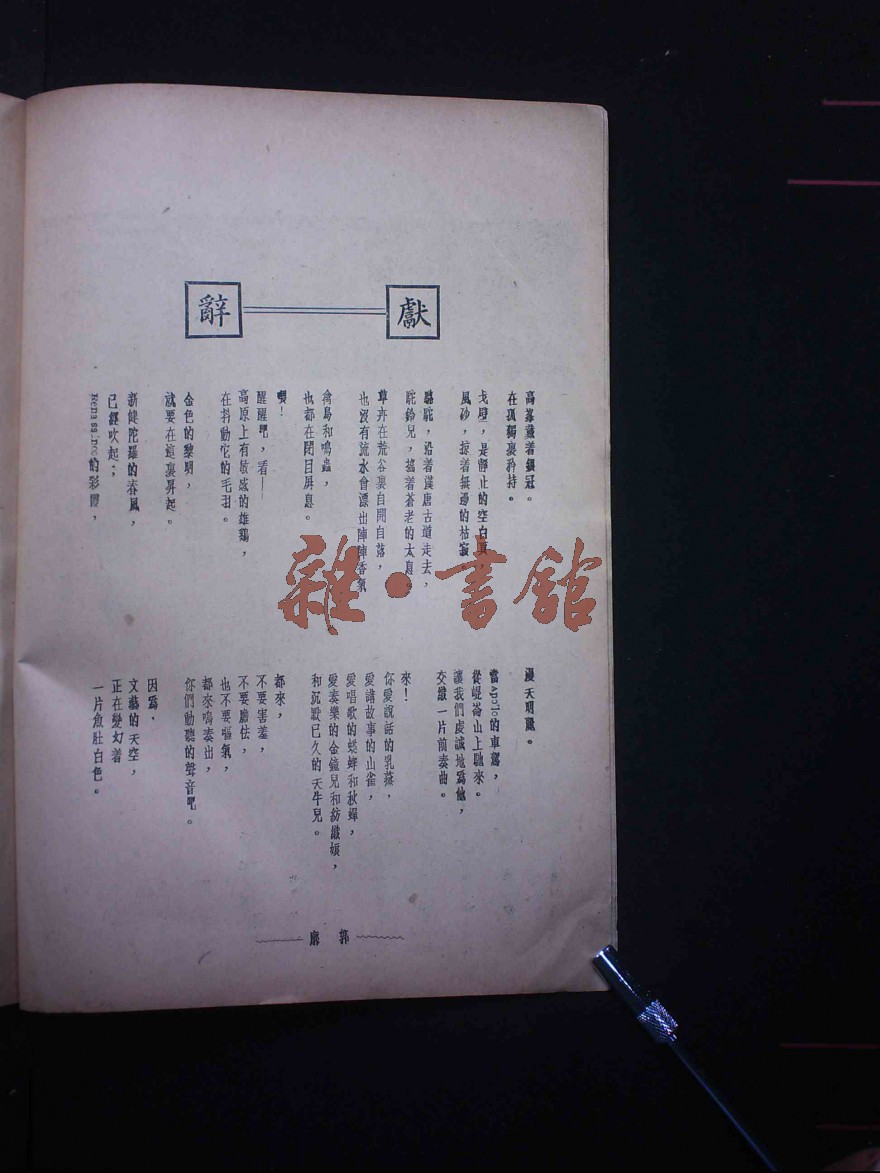 獻辭
高峯戴着銀冠。
在孤獨裏矜持。
戈壁，是靜止的空白頁
風砂，掠着無邊的枯寂
駱駝，沿着漢唐古道走去，
駝鈴兒，搖着蒼老的太息。
草卉在荒谷裏自開自落，
也沒有流水會漂出陣陣香氣
禽鳥和鳴蟲，
也都在閉目屏息。
喂！
醒醒吧，看——
高原上有敏感的雄鷄，
在抖動它的毛羽。
金色的黎明，
就要在這裏昇起。
新健陀羅的春風，
已經吹起；
的彩霞，
漫天明麗。
當Apollo的車駕，
從崐崙山上馳來。
讓我們虔誠地爲他，
交織一片前奏曲。
來！
你愛說話的乳燕，
愛講故事的山雀，
愛唱歌的蟋蟀和秋蟬，
愛奏樂的金鐘兒和紡織娘，
和沉默已久的天牛兒。
都來，
不要害羞，
不要膽怯，
也不要嘔氣，
都來鳴奏出，
你們動聽的聲音吧。
因爲，
文藝的天空，
正在變幻着
一片魚肚白色。
郭廓
雜·書館